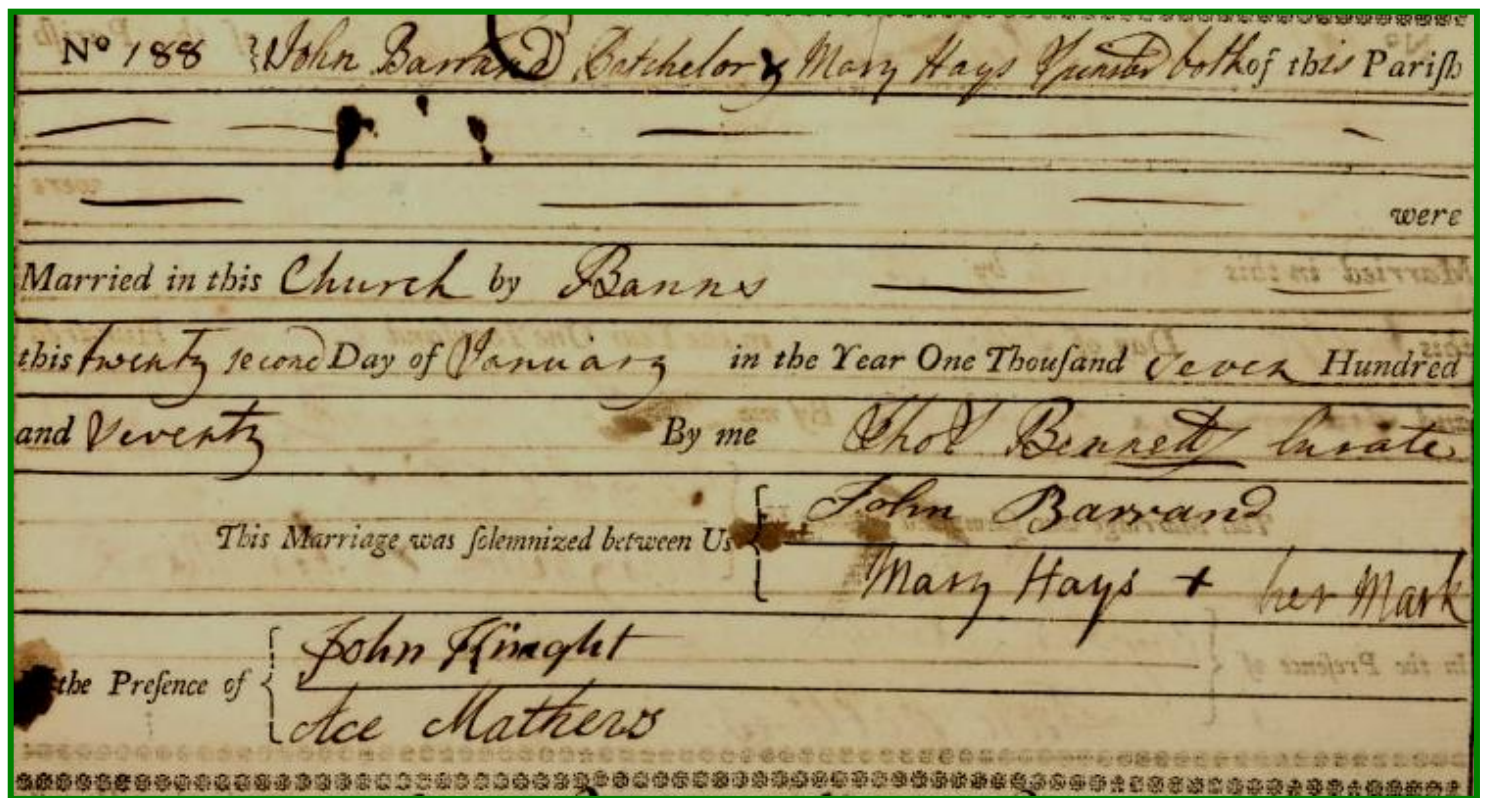 No 188 John Barrand Batchelor & Mary Hays Spinster both of this Pariſh
were
Married in this Church by Banns
this twenty second Day of January in the Year One Thouſand Seven Hundred
and Seventy By me Thos Bennett Curate
This Marriage was ſolemnized between Us John Barrand
Mary Hays + her Mark
the Preſence of John Kinght
Ace Mathews